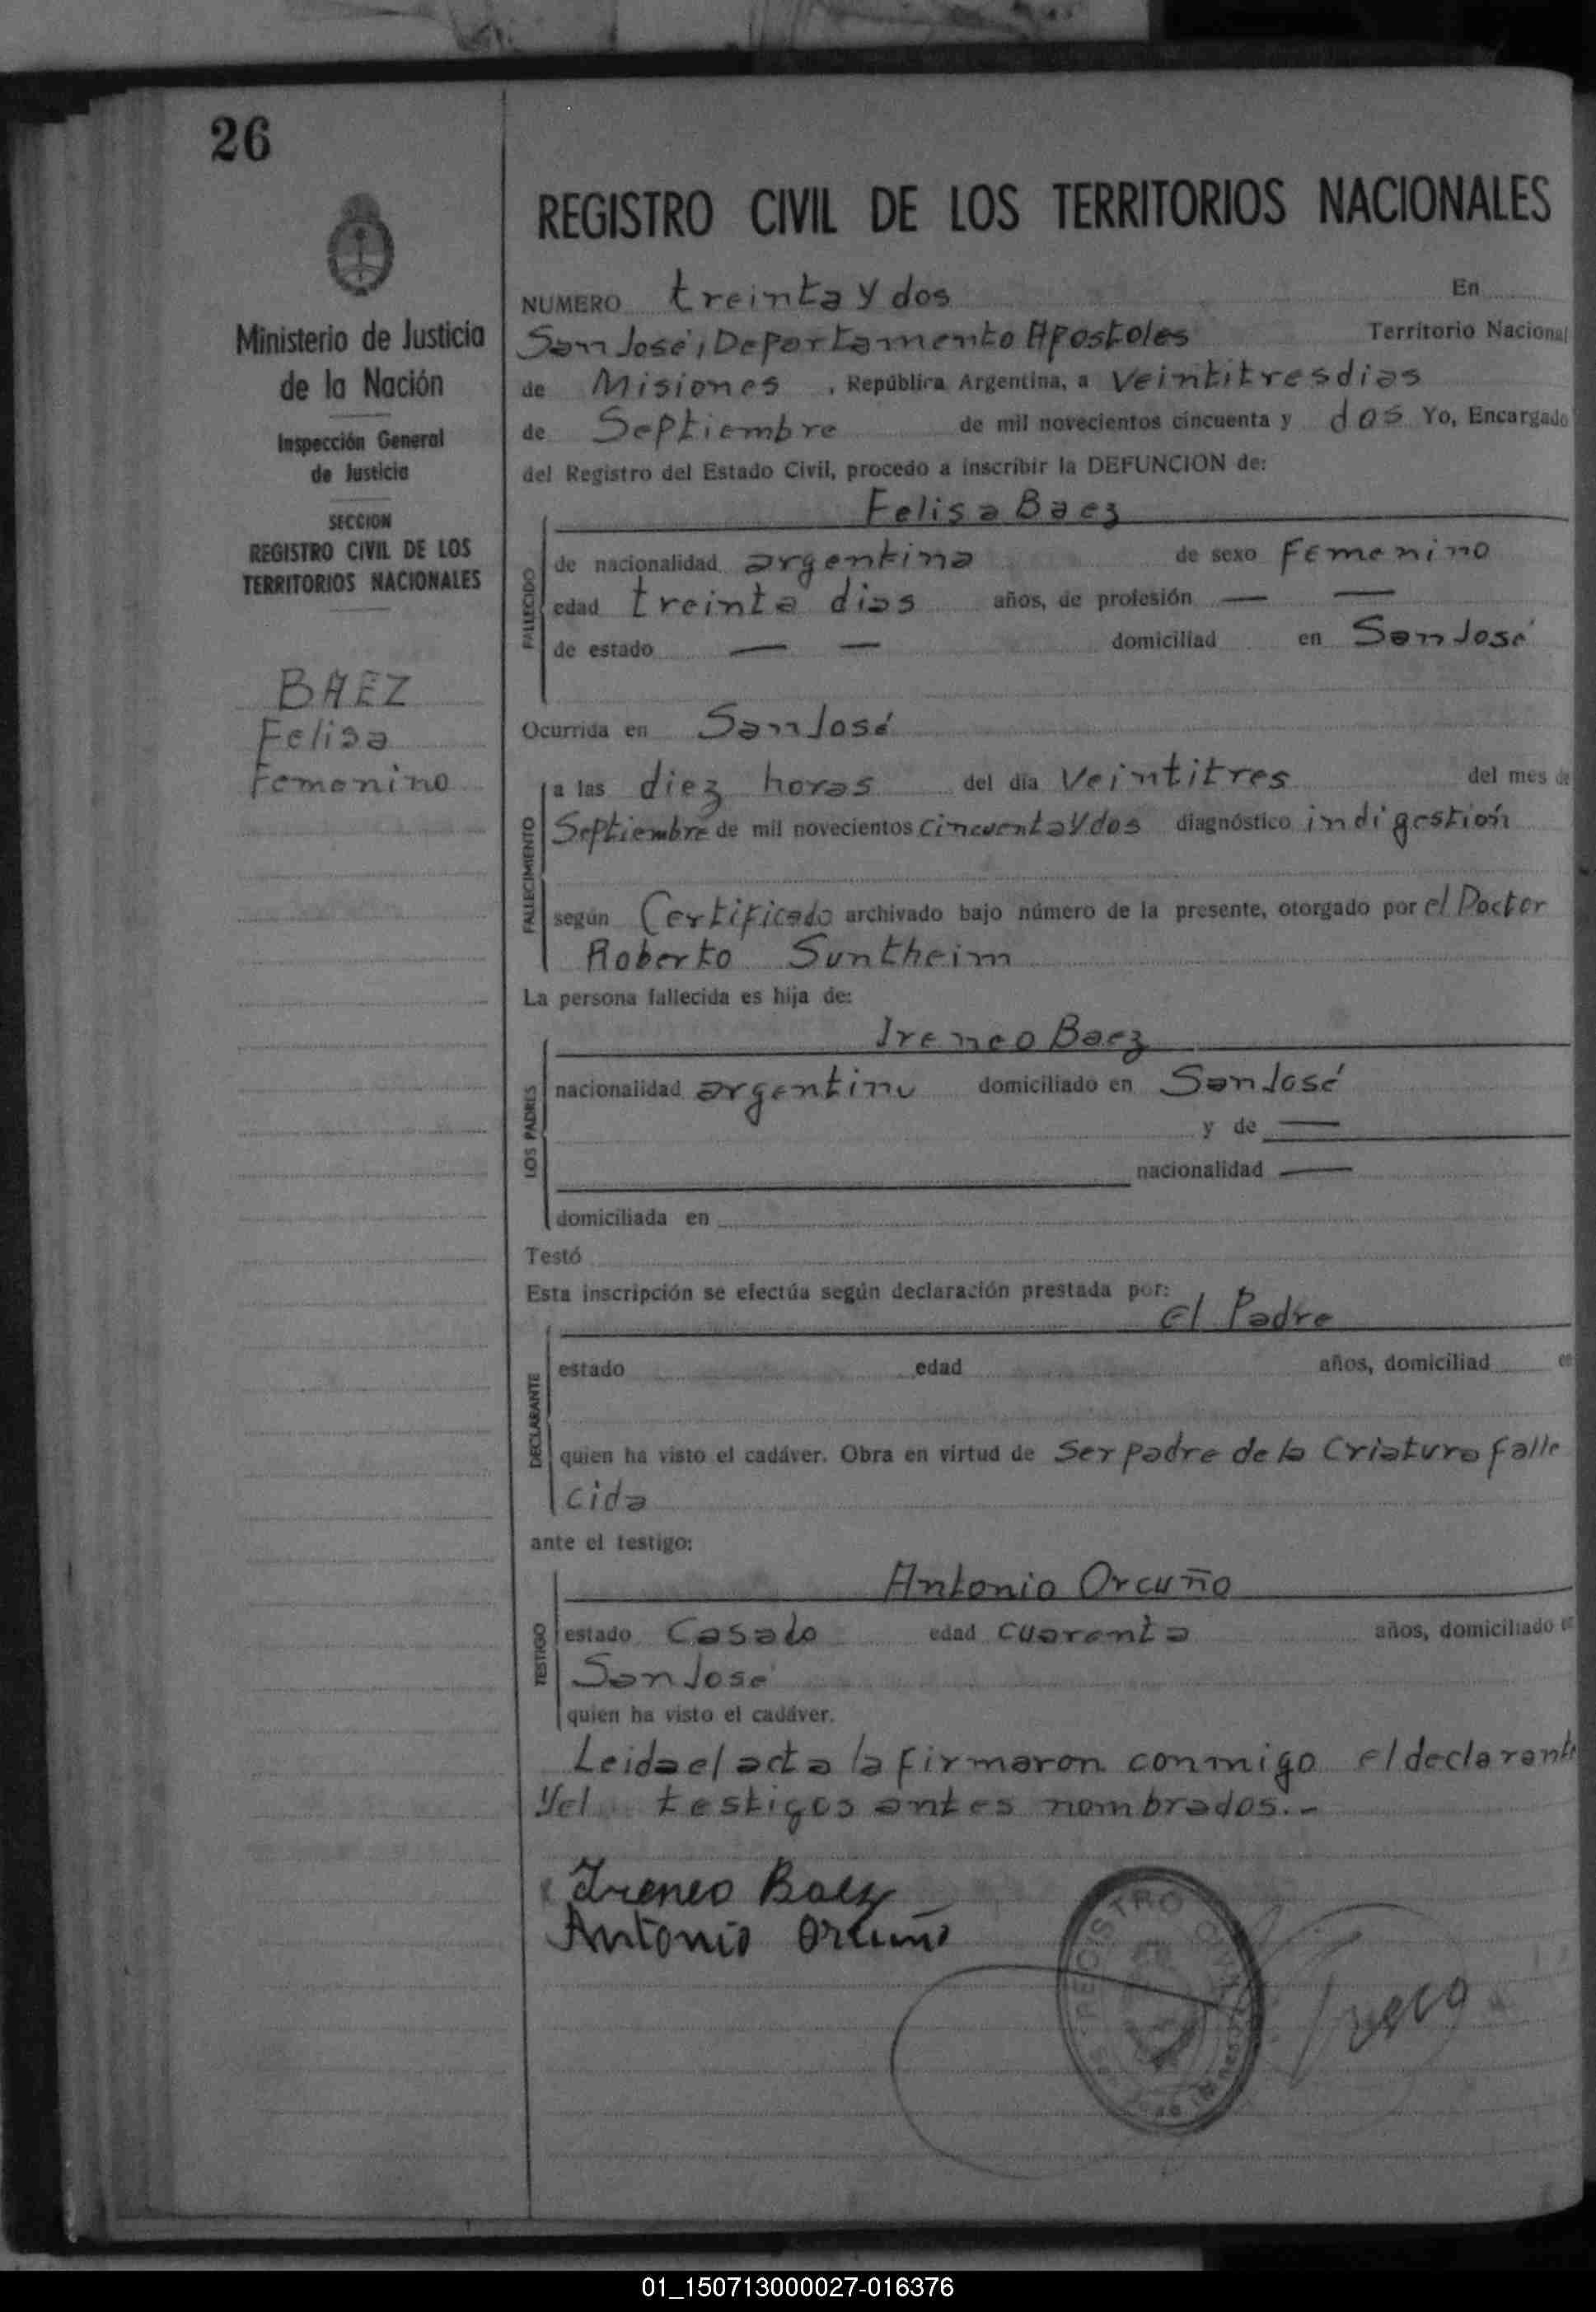 26
Ministerio de Justicia
de la Nación
Inspección General
de Justicia
SECCION
REGISTRO CIVIL DE LOS
TERRITORIOS NACIONALES
BAEZ
Felisa
Femenino
REGISTRO CIVIL DE LOS TERRITORIOS NACIONALES
NUMERO treinta y dos En
San José, Departamento Apostoles Territorio Nacional
de Misiones, República Argentina, a Veintitres dias
de Septiembre de mil novecientos cincuenta y dos Yo, Encargado
del Registro del Estado Civil, procedo a inscribir la DEFUNCION de:
Felisa Baez
FALLECIDO
de nacionalidad argentina de sexo Femenino
edad treinta dias años, de profesión — —
de estado — — domiciliad en San José
Ocurrida en San José
FALLECIMIENTO
a las diez horas del día Veintitres del mes de
Septiembre de mil novecientos cincuenta y dos diagnóstico indigestión
según Certificado archivado bajo número de la presente, otorgado por el Doctor
Roberto Suntheim
La persona fallecida es hija de:
LOS PADRES
Ireneo Baez
nacionalidad argentino domiciliado en San José
y de —
nacionalidad —
domiciliada en
Testó
Esta inscripción se efectúa según declaración prestada por:
El Padre
DECLARANTE
estado edad años, domiciliad en
quien ha visto el cadáver. Obra en virtud de Ser padre de la Criatura falle
cida
ante el testigo:
TESTIGO
Antonio Orcuño
estado Casado edad cuarenta años, domiciliado en
San José
quien ha visto el cadáver.
Leida el acta la firmaron conmigo el declarante
Y el testigos antes nombrados.-
Ireneo Baez
Antonio Orcuño
REGISTRO CIVIL
01_150713000027-016376